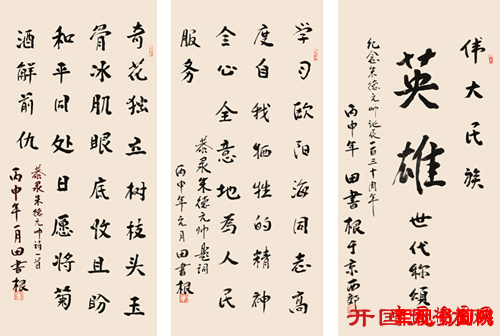 伟大民族
英雄
世代称頌
纪念朱德元帅诞辰一百三十周年
丙申年 田书根于京西郊
学习欧阳海同志高
度自我牺牲的精神
全心全意地为人民
服务
恭录朱德元帅题词
丙申年元月田书根
奇花独立树枝头玉
骨冰肌眼底收且盼
和平同处日愿将菊
酒解前仇
恭录朱德元帅诗一首
丙申年一月田书根
开国